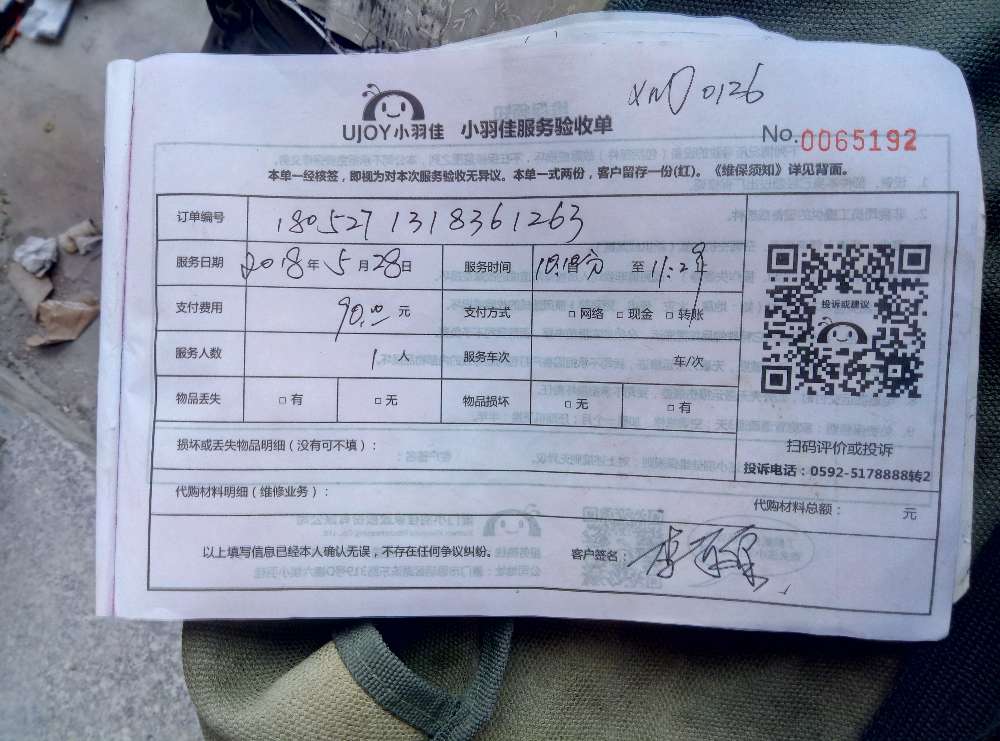 XM 0126
UJOY小羽佳 小羽佳服务验收单
No. 0065192
本单一经核签，即视为对本次服务验收无异议。本单一式两份，客户留存一份(红)。《维保须知》详见背面。
订单编号 1805271318361263
服务日期 2018年5月28日 服务时间 至 11:2
支付费用 90.00 元 支付方式 □ 网络 □ 现金 □ 转账
服务人数 1 人 服务车次 车/次
物品丢失 □ 有 □ 无 物品损坏 □ 无 □ 有
投诉或建议
扫码评价或投诉
投诉电话：0592-5178888转2
损坏或丢失物品明细（没有可不填）：
代购材料明细（维修业务）： 代购材料总额： 元
以上填写信息已经本人确认无误，不存在任何争议纠纷。 客户签名：